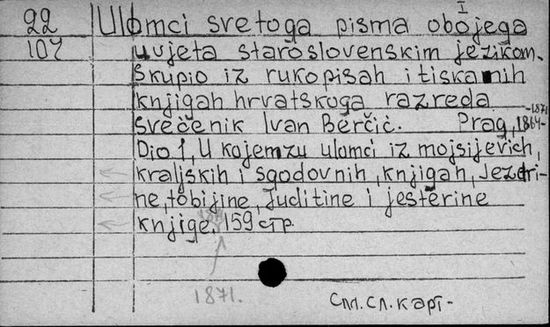 I
22 Ulomci svetoga pisma obojega
107 uvjeta staroslovenskim jezikom.
Skupio iz rukopisah i tiskamih
knjigah hrvatskuga razreda
-1871
Svečenik Ivan Berčić. Prag, 1864-
Dio 1, U kojem zu ulomci iz mojsijevich,
kraljskih i sgodovnih, knjigah, Jezdri-
ne, tobijine, Juditine i jesterine
knjige. 159 стр.
1871.
См. сл. карт-